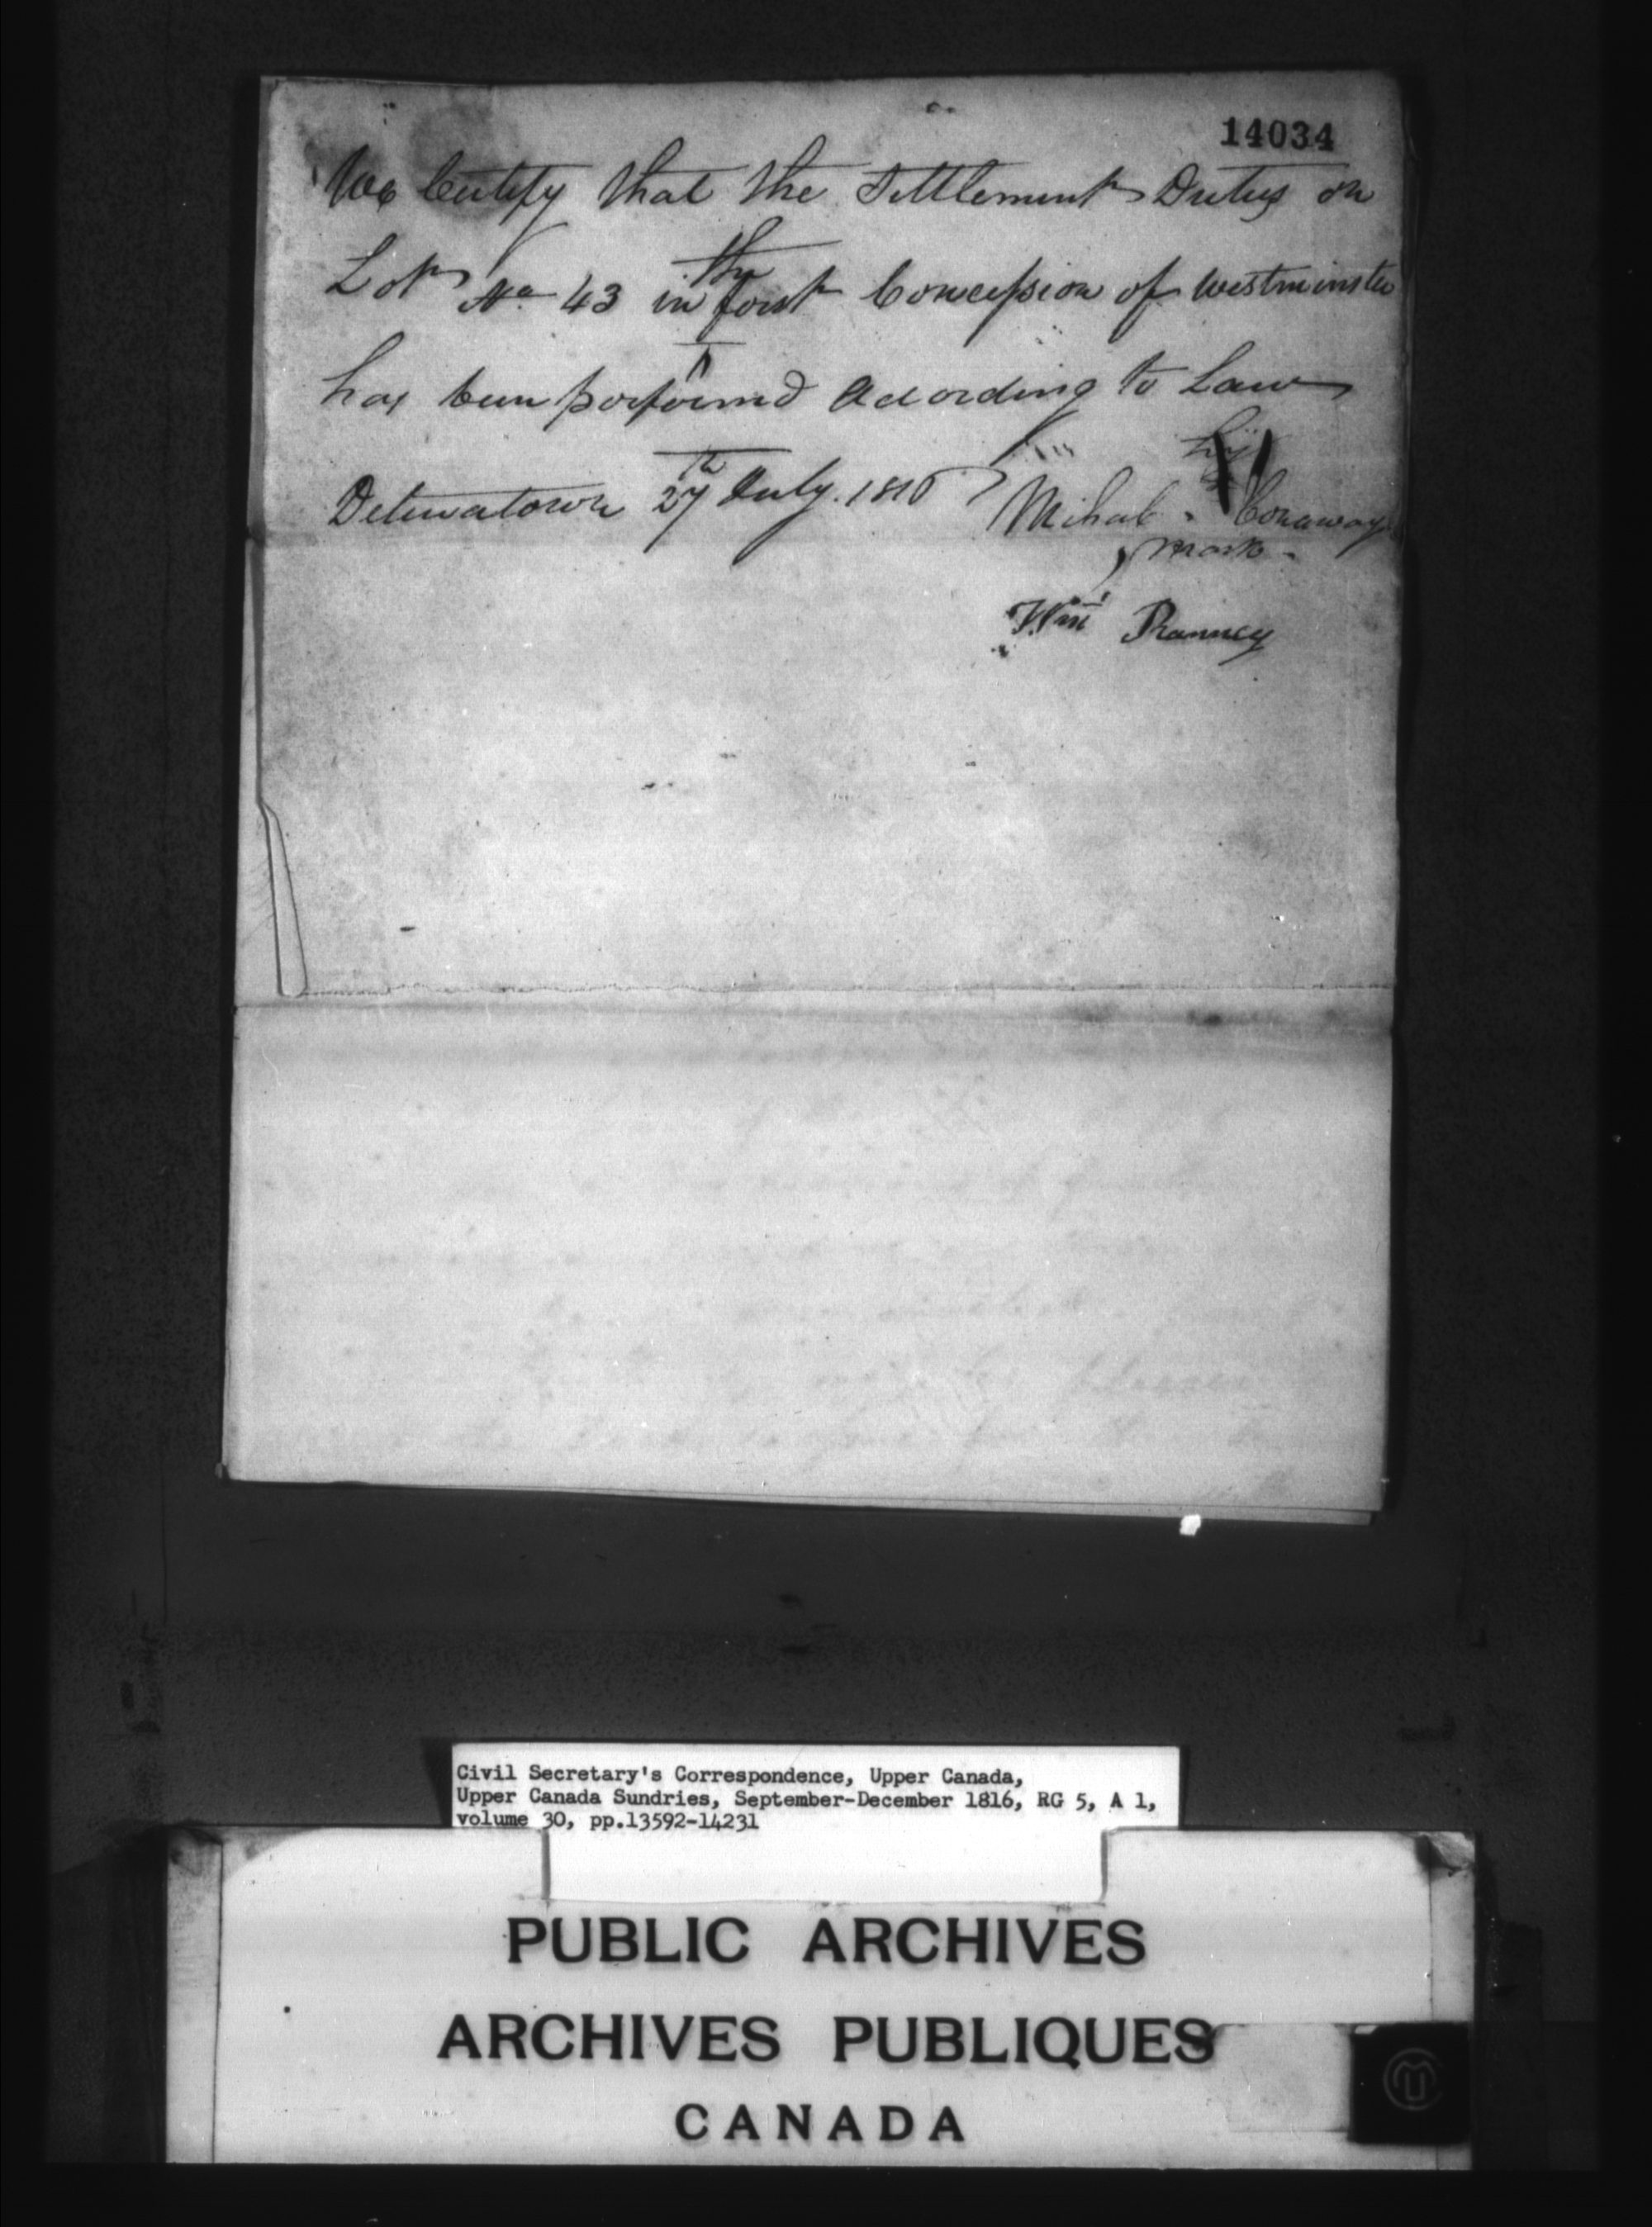 14034
We Certify that the Settlement Dutys on
Lot No 43 in the forst Concession of Westminster
has been porformd Acording to Law
Delewatown 27th July. 1816
his
Mihal Conaway
mark
Wm Ranney
Civil Secretary's Correspondence, Upper Canada,
Upper Canada Sundries, September-December 1816, RG 5, A 1,
volume 30, pp.13592-14231
PUBLIC ARCHIVES
ARCHIVES PUBLIQUES
CANADA